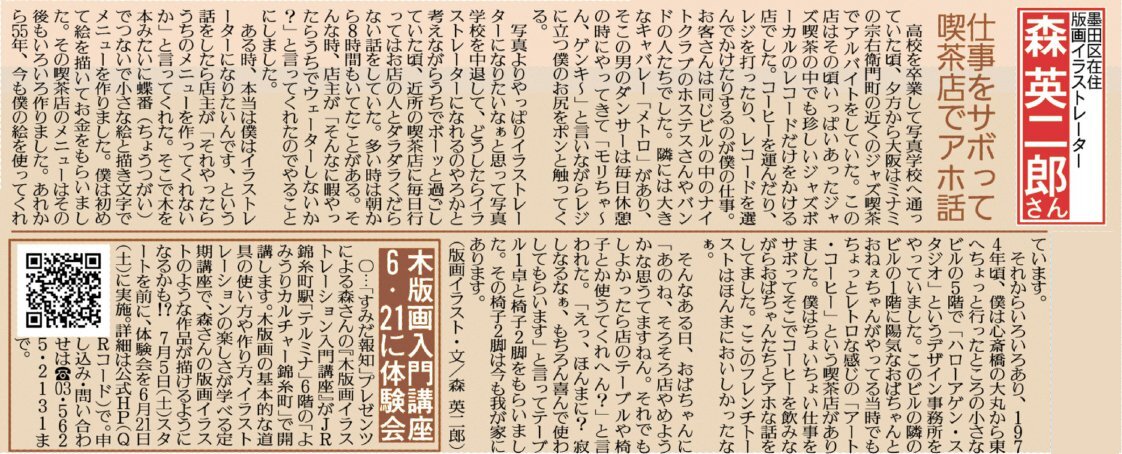 墨田区在住
版画イラストレーター
森 英二郎さん
仕事をサボって
喫茶店でアホ話
高校を卒業して写真学校へ通っ
ていた頃、夕方から大阪はミナミ
の宗右衛門町の近くのジャズ喫茶
でアルバイトをしていた。この
店はその頃いっぱいあったジャ
ズ喫茶の中でも珍しいジャズボ
ーカルのレコードだけをかける
店でした。コーヒーを運んだり、
レジを打ったり、レコードを選
んでかけたりするのが僕の仕事。
お客さんは同じビルの中のナイ
トクラブのホステスさんやバン
ドの人たちでした。隣には大き
なキャバレー「メトロ」があり、
そこの男のダンサーは毎日休憩
の時にやってきて「モリちゃ〜
ん、ゲンキ〜」と言いながらレジ
に立つ僕のお尻をポンと触ってく
る。
写真よりやっぱりイラストレー
ターになりたいなぁと思って写真
学校を中退して、どうしたらイラ
ストレーターになれるのやろかと
考えながらうちでボーッと過ごし
ていた頃、近所の喫茶店に毎日行
ってはお店の人とダラダラくだら
ない話をしていた。多い時は朝か
ら8時間もいてたことがある。そ
んな時、店主が「そんなに暇やっ
たらうちでウェーターしないか
?」と言ってくれたのでやること
にしました。
ある時、本当は僕はイラストレ
ーターになりたいんです、という
話をしたら店主が「それやったら
うちのメニューを作ってくれない
か」と言ってくれた。そこで木を
本みたいに蝶番(ちょうつがい)
でつないで小さな絵と描き文字で
メニューを作りました。僕は初め
て絵を描いてお金をもらいまし
た。その喫茶店のメニューはその
後もいろいろ作りました。あれか
ら55年、今も僕の絵を使ってくれ
ています。
それからいろいろあり、197
4年頃、僕は心斎橋の大丸から東
へちょっと行ったところの小さな
ビルの5階で「ハローアゲン・ス
タジオ」というデザイン事務所を
やっていました。このビルの隣の
ビルの1階に陽気なおばちゃんと
おねぇちゃんがやってる当時でも
ちょっとレトロな感じの「アート
・コーヒー」という喫茶店があり
ました。僕はちょいちょい仕事を
サボってそこでコーヒーを飲みな
がらおばちゃんたちとアホな話を
してました。ここのフレンチトー
ストはほんまにおいしかったな
ぁ。
そんなある日、おばちゃんに
「あのね、そろそろ店やめよう
かな思うてますねん。それでも
しよかったら店のテーブルや椅
子とか使うてくれへん?」と言
われた。「えっ ほんまに?寂
しなるなぁ、もちろん喜んで使わ
してもらいます」と言ってテーブ
ル1卓と椅子2脚をもらいまし
た。その椅子2脚は今も我が家に
あります。
(版画イラスト・文/森 英二郎)
木版画入門講座
6・21に体験会
〇…「すみだ報知」プレゼンツ
による森さんの『木版画イラス
トレーション入門講座』がJR
錦糸町駅「テルミナ」6階の「よ
みうりカルチャー錦糸町」で開
講します。木版画の基本的な道
具の使い方や作り方、イラスト
レーションの楽しさが学べる定
期講座で、森さんの版画イラス
トのような作品が描けるように
なるかも!? 7月5日(土)スタ
ートを前に、体験会を6月21日
(土)に実施。詳細は公式HP(Q
Rコード)で。申
し込み・問い合わ
せは☎03・562
5・2131ま
で。